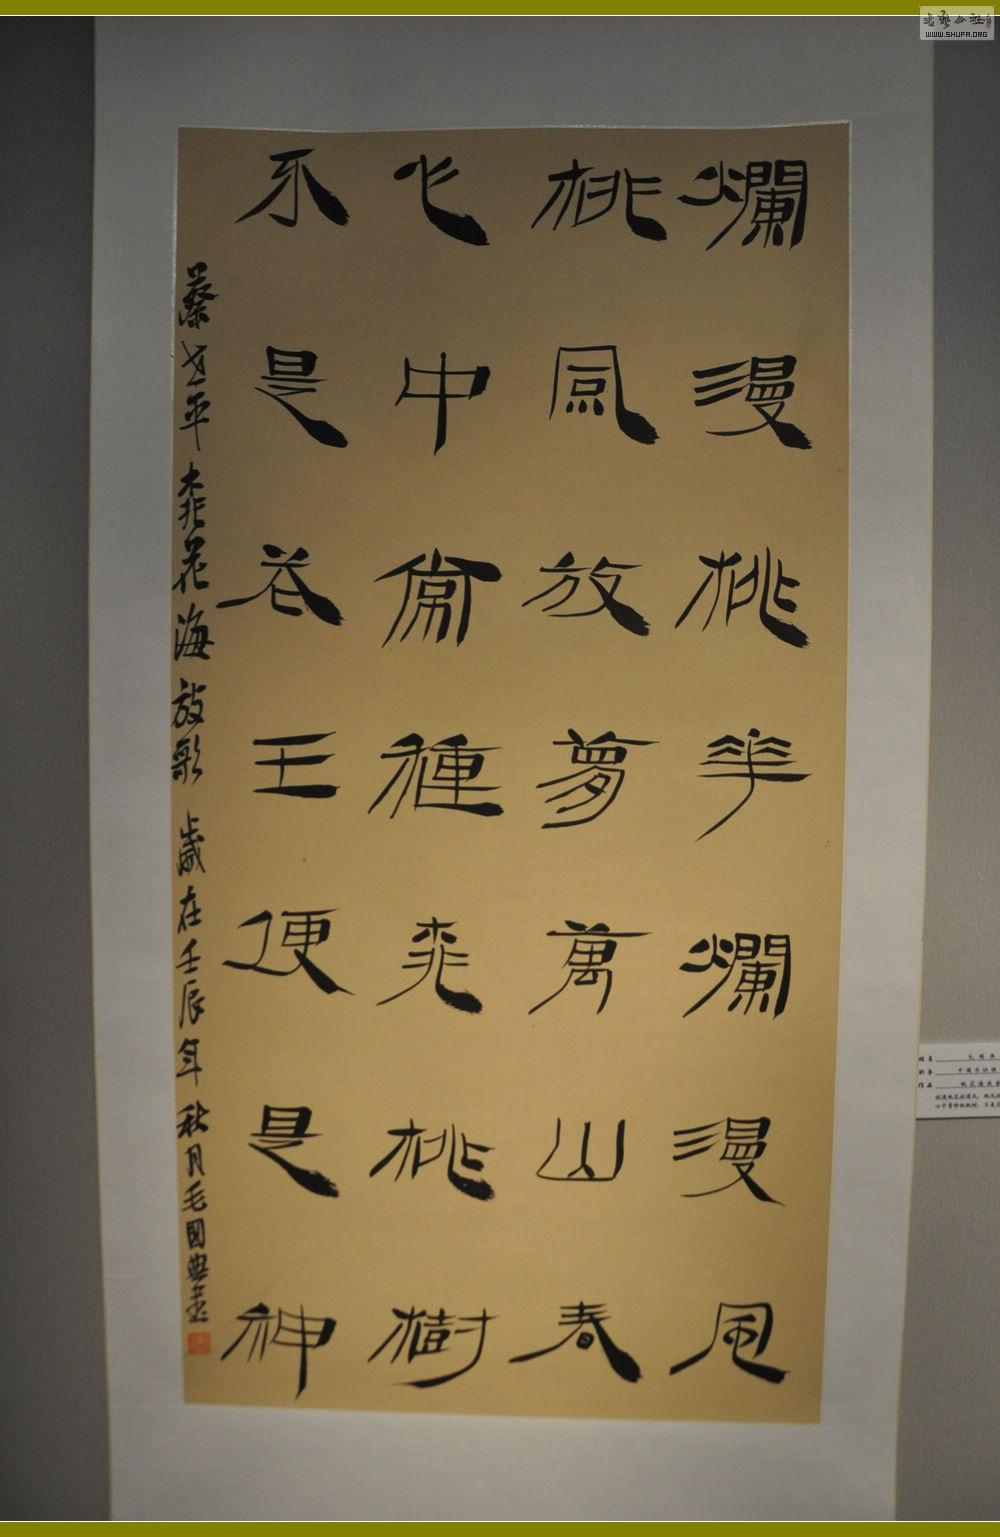 爛漫桃華爛漫風
桃風放夢萬山春
心中常種桃桃樹
不是谷王便是神
蔡世平桃花海放歌 歲在壬辰年秋月毛國典書
书艺公社
WWW.SHUFA.ORG
姓名
作品